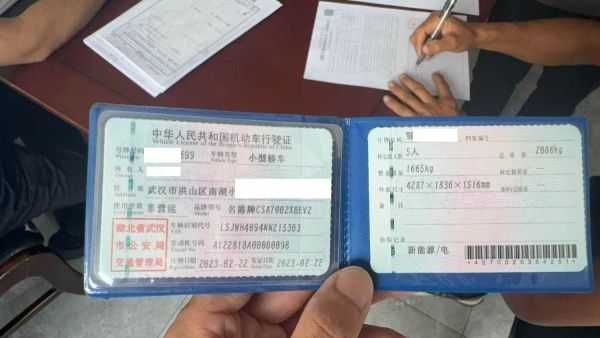 中华人民共和国机动车行驶证
Vehicle License of the People's Republic of China
号牌号码 999 车辆类型 小型轿车
Plate No. Vehicle Type
所有人
Owner
住址 武汉市洪山区南湖小
Address
使用性质 非营运 品牌型号 名爵牌CSA7002XBEV2
Use Character Model
湖北省武汉
市公安局
交通管理局
车辆识别代号 LSJWH4094NN215303
VIN
发动机号码 A122818A00600098
Engine No.
注册日期 2023-02-22 发证日期 2023-02-22
Register Date Issue Date
号牌号码 鄂 档案编号
核定载人数 5人 总质量 2086kg
整备质量 1665kg
外廓尺寸 4287×1836×1516mm
检验记录
新能源/电
*4270025354251*